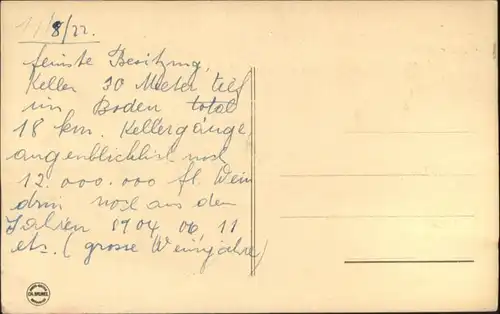 11/8/22.
feinste Besitzung,
Keller 30 Meter tief
im Boden total
18 km. Kellergänge,
augenblicklich noch
12.000.000 fl. Wein
drin noch aus den
Jahren 1904 06, 11
etc. (grosse Weinjahre)